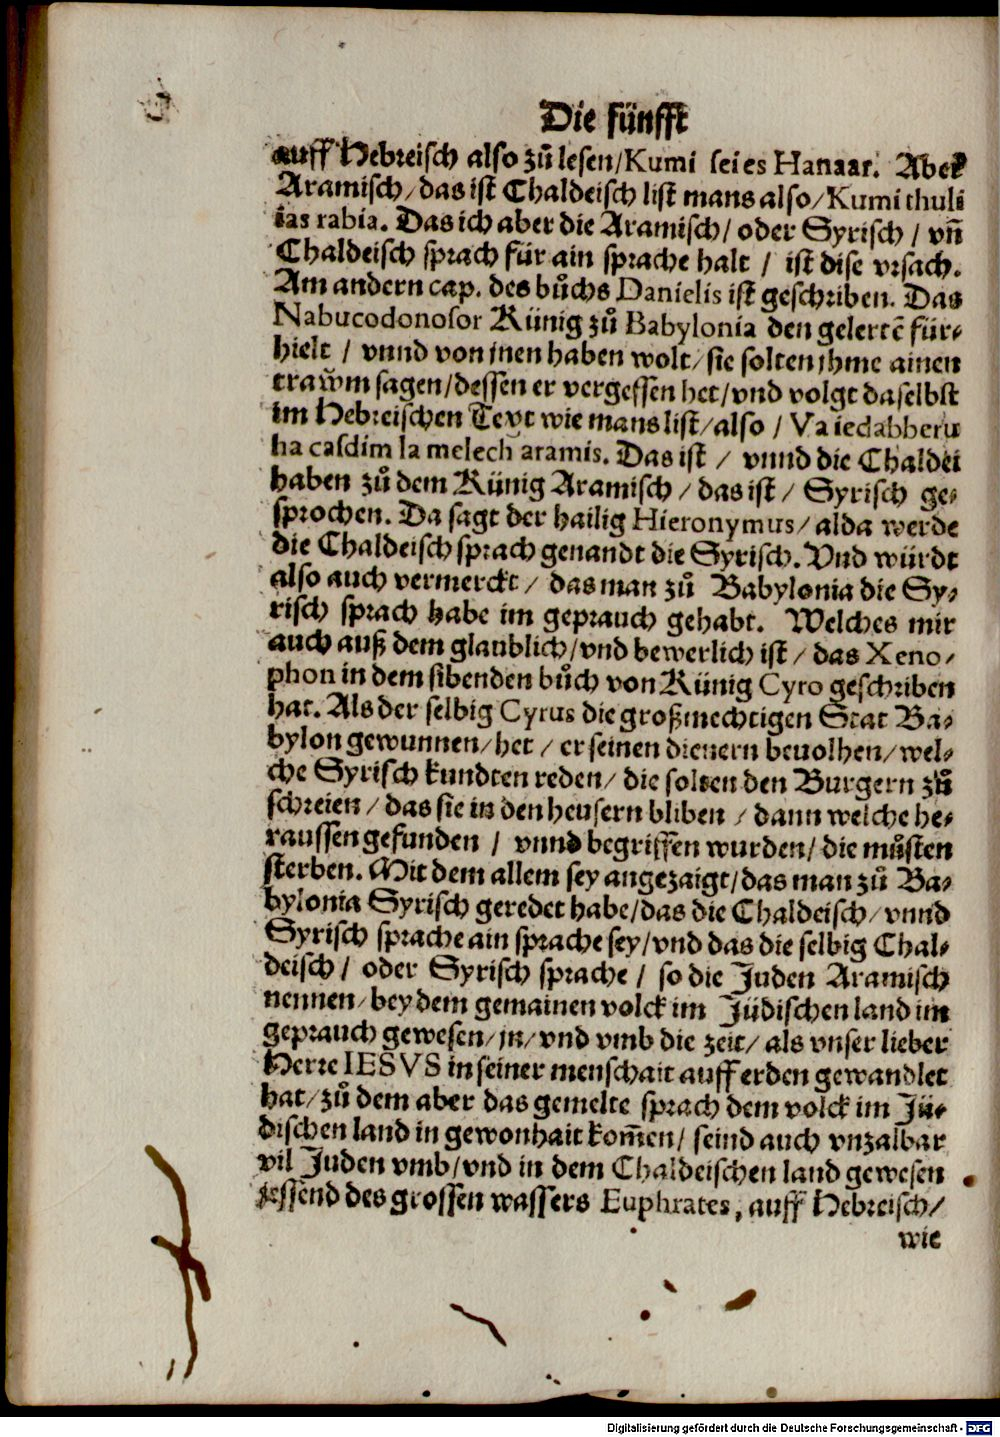 Die fünfft
auff Hebreisch also zů lesen/Kumi sei es Hanaar. Aber
Aramisch/das ist Chaldeisch list mans also/Kumi thuli
ias rabia. Das ich aber die Aramisch/ oder Syrisch / vn̄
Chaldeisch sprach für ain sprache halt / ist dise vrsach.
Am andern cap. des bůchs Danielis ist geschriben. Das
Nabucodonosor Künig zů Babylonia den gelertē für-
hielt / vnnd von jnen haben wolt/sie solten jhme ainen
trawm̄ sagen/dessen er vergessen het/vnd volgt daselbst
im Hebreischen Text wie mans list/also / Va iedabberu
ha casdim la melech aramis. Das ist / vnnd die Chaldei
haben zů dem Künig Aramisch/das ist/ Syrisch ge-
sprochen. Da sagt der hailig Hieronymus/alda werde
die Chaldeisch sprach genandt die Syrisch. Vnd würdt
also auch vermerckt/ das man zů Babylonia die Sy-
risch sprach habe im geprauch gehabt. Welches mir
auch auß dem glaublich/vnd bewerlich ist/das Xeno-
phon in dem sibenden bůch von Künig Cyro geschriben
hat. Als der selbig Cyrus die großmechtigen Stat Ba-
bylon gewunnen/het/er seinen dienern beuolhen/wel-
che Syrisch kundten reden/ die solten den Burgern zů
schreien/das sie in den heusern bliben / dann welche he-
raussen gefunden / vnnd begriffen wurden/die můsten
sterben. Mit dem allem sey angezaigt/das man zů Ba-
bylonia Syrisch geredet habe/das die Chaldeisch/vnnd
Syrisch sprache ain sprache sey/vnd das die selbig Chal-
deisch/ oder Syrisch sprache/ so die Juden Aramisch
nennen/bey dem gemainen volck im Jüdischen land im
geprauch gewesen/jn/vnd vmb die zeit/als vnser lieber
Herre IESVS in seiner menschait auff erden gewandlet
hat/zů dem aber das gemelte sprach dem volck im Jü-
dischen land in gewonhait kom̄en/ seind auch vnzalbar
vil Juden vmb/vnd in dem Chaldeischen land gewesen
jessend des grossen wassers Euphrates, auff Hebreisch/
wie
Digitalisierung gefördert durch die Deutsche Forschungsgemeinschaft - DFG